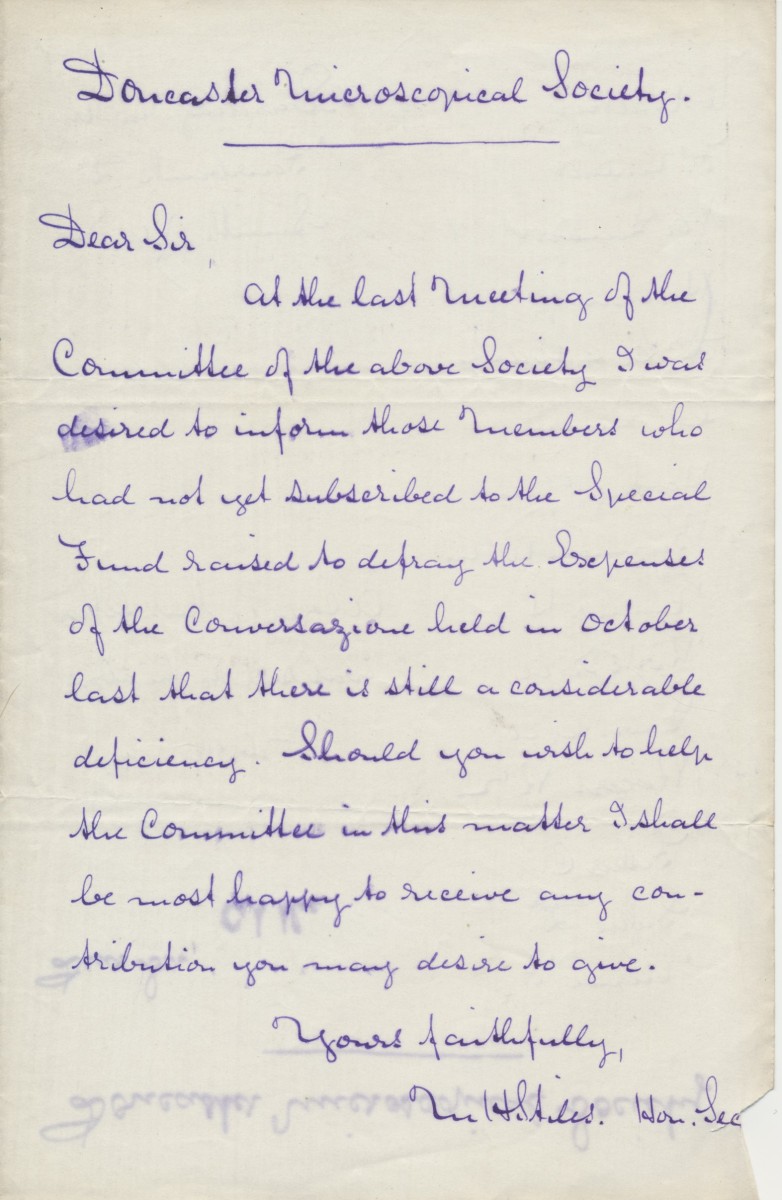 Doncaster Microscopical Society.
Dear Sir,
At the last Meeting of the
Committee of the above Society I was
desired to inform those Members who
had not yet subscribed to the Special
Fund raised to defray the Expenses
of the Conversazione held in October
last that there is still a considerable
deficiency. Should you wish to help
the Committee in this matter I shall
be most happy to receive any con-
tribution you may desire to give.
Yours faithfully,
M H Stiles. Hon. Sec